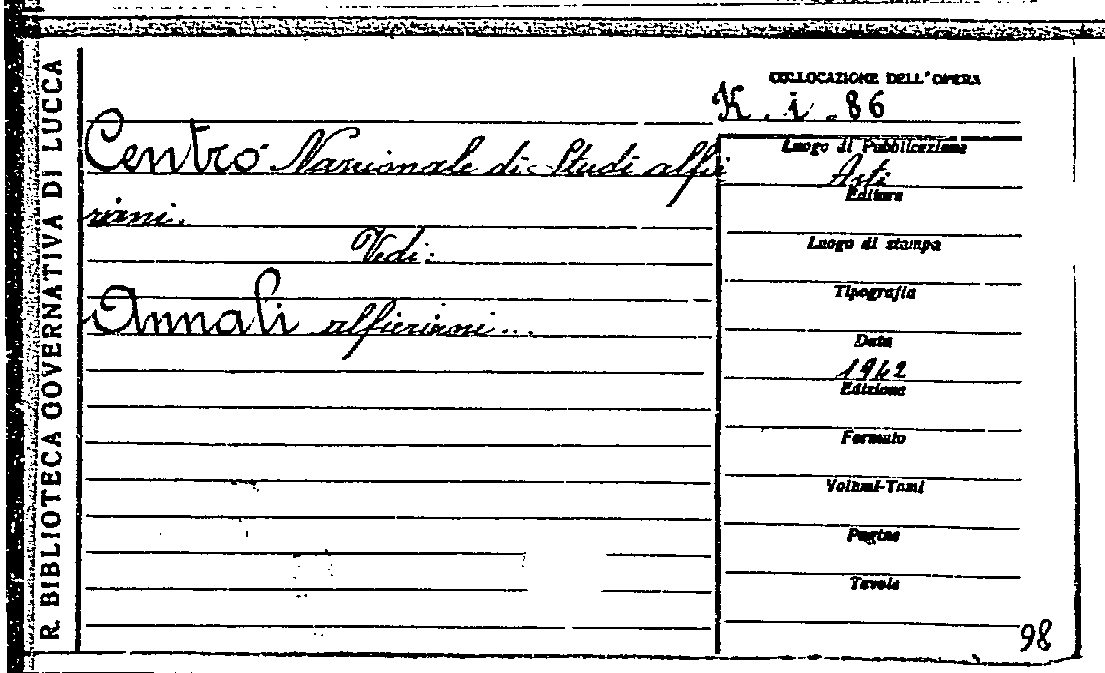 R. BIBLIOTECA GOVERNATIVA DI LUCCA
COLLOCAZIONE DELL'OPERA
K. i. 86
Centro Nazionale di Studi alfie
riani.
Vedi:
Annali alfieriani...
Luogo di Pubblicazione
Asti
Editore
Luogo di stampa
Tipografia
Data
1942
Edizione
Formato
Volumi-Tomi
Pagine
Tavole
98